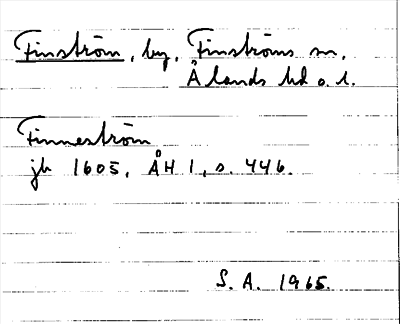 Finström, by, Finströms sn,
Ålands hd o. l.
Finneström
jb 1605, ÅH 1, s. 446.
S. A. 1965.